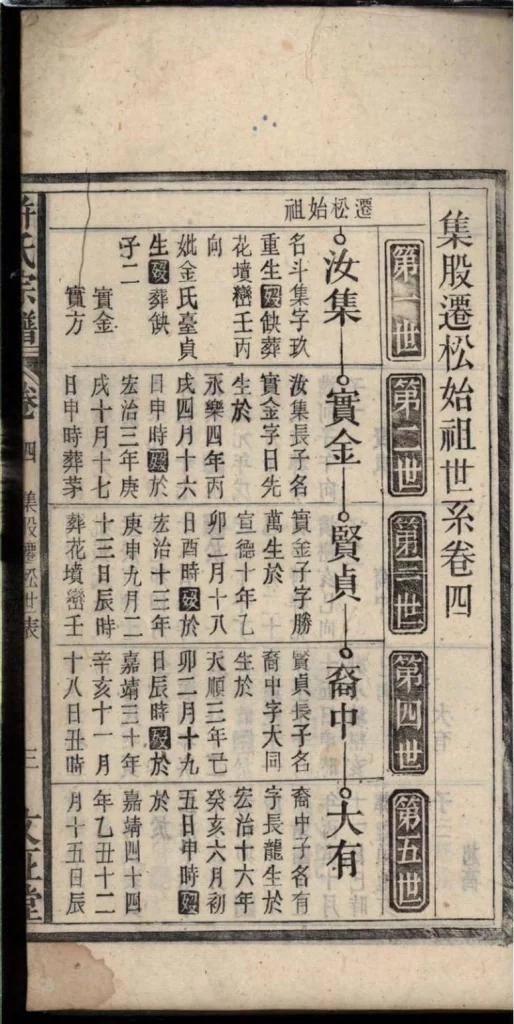 集股遷松始祖世系卷四
第一世
第二世
第三世
第四世
第五世
遷松始祖
汝集
實金
賢貞
裔中
大有
名斗集字玖
重生歿缺葬
花墳巒壬丙
向
妣金氏臺貞
生歿葬缺
子二
實金
實方
汝集長子名
實金字日先
生於
永樂四年丙
戌四月十六
日申時歿於
宏治三年庚
戌十月十七
日申時葬茅
實金子字勝
萬生於
宣德十年乙
卯二月十八
日酉時歿於
宏治十三年
庚申九月二
十三日辰時
葬花墳巒壬
賢貞長子名
裔中字大同
生於
天順三年己
卯二月十九
日辰時歿於
嘉靖三十年
辛亥十一月
十八日丑時
裔中子名有
字長龍生於
宏治十六年
癸亥六月初
五日申時歿
於
嘉靖四十四
年乙丑十二
月十五日辰
許氏宗譜
卷四
集股遷松世表
三